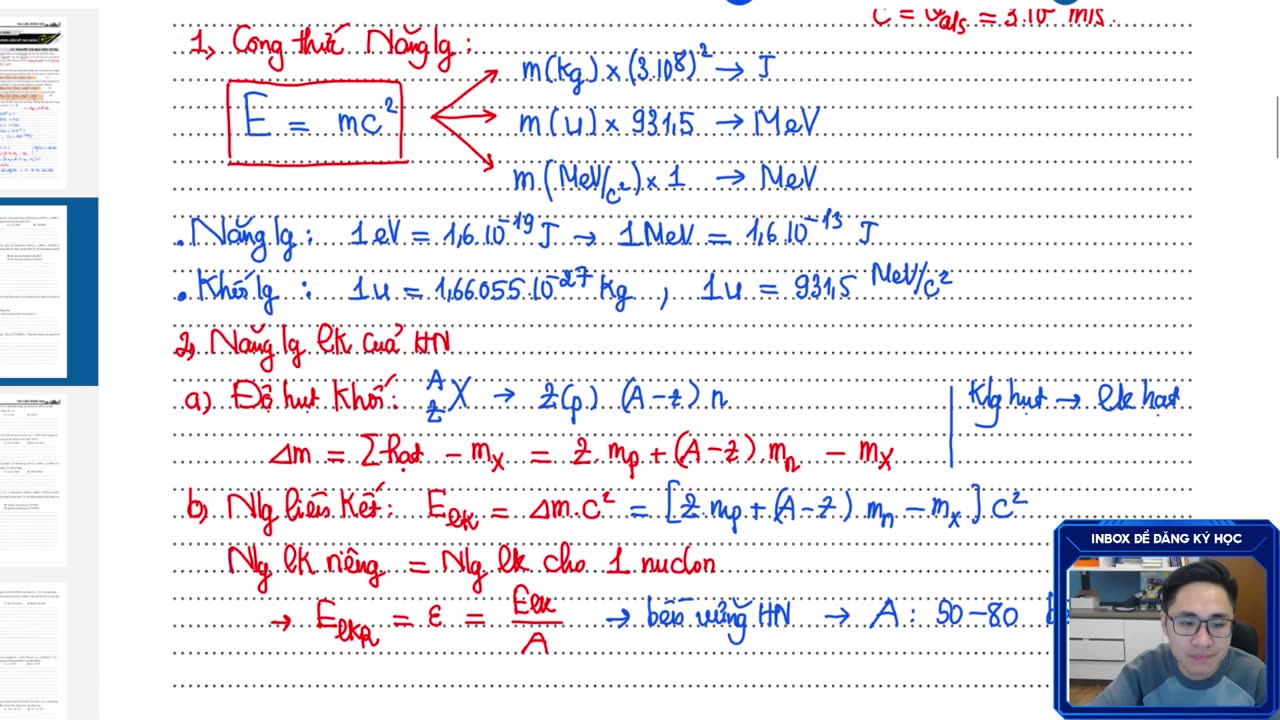 c = v ás = 3.10⁸ m/s.
1, Công thức Năng lg:
E = mc²
m(kg) x (3.10⁸)² → J
m(u) x 931,5 → MeV
m(MeV/c²) x 1 → MeV
. Năng lg: 1eV = 1,6.10⁻¹⁹ J → 1MeV = 1,6.10⁻¹³ J
. Khối lg: 1u = 1,66055.10⁻²⁷ kg, 1u = 931,5 MeV/c²
2, Năng lg lk của HN
a) Độ hụt khối: ᴬ_Z X → Z(p) (A-Z) n
Klg hụt → lk hạt
Δm = Σhạt - mₓ = Z.mp + (A-Z).mn - mₓ
b) Ng liên kết: Elk = Δm.c² = [Z.mp + (A-Z) mn - mₓ] c²
Ng lk riêng = Ng lk cho 1 nuclon
→ ElkR = ε = Elk/A → bền vững HN → A: 50-80
INBOX ĐỂ ĐĂNG KÝ HỌC